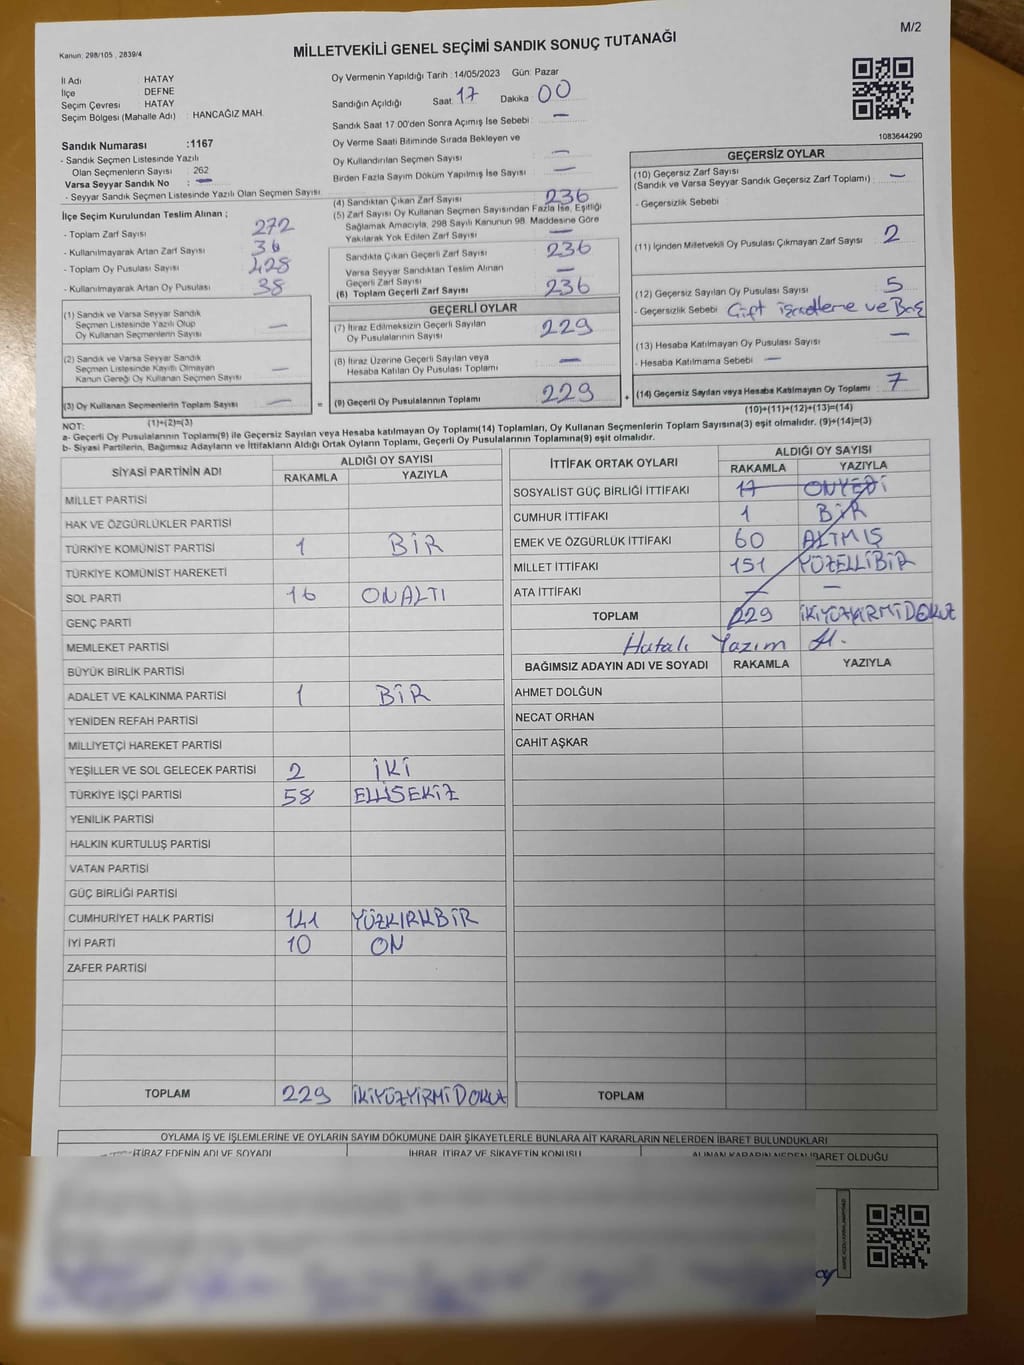 M/2
Kanun: 298/105 , 2839/4
MİLLETVEKİLİ GENEL SEÇİMİ SANDIK SONUÇ TUTANAĞI
İl Adı HATAY
İlçe DEFNE
Seçim Çevresi HATAY
Seçim Bölgesi (Mahalle Adı) : HANCAĞIZ MAH.
Oy Vermenin Yapıldığı Tarih : 14/05/2023 Gün: Pazar
Sandığın Açıldığı Saat: 17 Dakika 00
Sandık Saat 17:00'den Sonra Açımış İse Sebebi : —
Oy Verme Saati Bitiminde Sırada Bekleyen ve
Oy Kullandırılan Seçmen Sayısı —
Birden Fazla Sayım Döküm Yapılmış İse Sayısı —
1083644290
Sandık Numarası :1167
- Sandık Seçmen Listesinde Yazılı
Olan Seçmenlerin Sayısı : 262
Varsa Seyyar Sandık No : —
- Seyyar Sandık Seçmen Listesinde Yazılı Olan Seçmen Sayısı
İlçe Seçim Kurulundan Teslim Alınan ;
- Toplam Zarf Sayısı 272
- Kullanılmayarak Artan Zarf Sayısı 36
- Toplam Oy Pusulası Sayısı 428
- Kullanılmayarak Artan Oy Pusulası 38
(1) Sandık ve Varsa Seyyar Sandık
Seçmen Listesinde Yazılı Olup
Oy Kullanan Seçmenlerin Sayısı —
(2) Sandık ve Varsa Seyyar Sandık
Seçmen Listesinde Kayıtlı Olmayan
Kanun Gereği Oy Kullanan Seçmen Sayısı —
(3) Oy Kullanan Seçmenlerin Toplam Sayısı —
(1)+(2)=(3)
(4) Sandıktan Çıkan Zarf Sayısı 236
(5) Zarf Sayısı Oy Kullanan Seçmen Sayısından Fazla İse, Eşitliği
Sağlamak Amacıyla, 298 Sayılı Kanunun 98. Maddesine Göre
Yakılarak Yok Edilen Zarf Sayısı —
Sandıkta Çıkan Geçerli Zarf Sayısı 236
Varsa Seyyar Sandıktan Teslim Alınan
Geçerli Zarf Sayısı —
(6) Toplam Geçerli Zarf Sayısı 236
GEÇERLİ OYLAR
(7) İtiraz Edilmeksizin Geçerli Sayılan
Oy Pusulalarının Sayısı 229
(8) İtiraz Üzerine Geçerli Sayılan veya
Hesaba Katılan Oy Pusulası Toplamı —
= (9) Geçerli Oy Pusulalarının Toplamı 229 +
GEÇERSİZ OYLAR
(10) Geçersiz Zarf Sayısı
(Sandık ve Varsa Seyyar Sandık Geçersiz Zarf Toplamı) : —
- Geçersizlik Sebebi
(11) İçinden Milletvekili Oy Pusulası Çıkmayan Zarf Sayısı 2
(12) Geçersiz Sayılan Oy Pusulası Sayısı 5
- Geçersizlik Sebebi Çift işaretleme ve Boş
(13) Hesaba Katılmayan Oy Pusulası Sayısı —
- Hesaba Katılmama Sebebi —
(14) Geçersiz Sayılan veya Hesaba Katılmayan Oy Toplamı 7
(10)+(11)+(12)+(13)=(14)
NOT:
a- Geçerli Oy Pusulalarının Toplamı(9) ile Geçersiz Sayılan veya Hesaba katılmayan Oy Toplamı(14) Toplamları, Oy Kullanan Seçmenlerin Toplam Sayısına(3) eşit olmalıdır. (9)+(14)=(3)
b- Siyasi Partilerin, Bağımsız Adayların ve İttifakların Aldığı Ortak Oyların Toplamı, Geçerli Oy Pusulalarının Toplamına(9) eşit olmalıdır.
SİYASİ PARTİNİN ADI ALDIĞI OY SAYISI
RAKAMLA YAZIYLA
MİLLET PARTİSİ
HAK VE ÖZGÜRLÜKLER PARTİSİ
TÜRKİYE KOMÜNİST PARTİSİ 1 BİR
TÜRKİYE KOMÜNİST HAREKETİ
SOL PARTİ 16 ONALTI
GENÇ PARTİ
MEMLEKET PARTİSİ
BÜYÜK BİRLİK PARTİSİ
ADALET VE KALKINMA PARTİSİ 1 BİR
YENİDEN REFAH PARTİSİ
MİLLİYETÇİ HAREKET PARTİSİ
YEŞİLLER VE SOL GELECEK PARTİSİ 2 İKİ
TÜRKİYE İŞÇİ PARTİSİ 58 ELLİSEKİZ
YENİLİK PARTİSİ
HALKIN KURTULUŞ PARTİSİ
VATAN PARTİSİ
GÜÇ BİRLİĞİ PARTİSİ
CUMHURİYET HALK PARTİSİ 141 YÜZKIRKBİR
İYİ PARTİ 10 ON
ZAFER PARTİSİ
TOPLAM 229 İKİYÜZYİRMİDOKUZ
İTTİFAK ORTAK OYLARI ALDIĞI OY SAYISI
RAKAMLA YAZIYLA
SOSYALİST GÜÇ BİRLİĞİ İTTİFAKI 17 ONYEDİ
CUMHUR İTTİFAKI 1 BİR
EMEK VE ÖZGÜRLÜK İTTİFAKI 60 ALTMIŞ
MİLLET İTTİFAKI 151 YÜZELLİBİR
ATA İTTİFAKI — —
TOPLAM 229 İKİYÜZYİRMİDOKUZ
Hatalı Yazım
BAĞIMSIZ ADAYIN ADI VE SOYADI RAKAMLA YAZIYLA
AHMET DOLĞUN
NECAT ORHAN
CAHİT AŞKAR
TOPLAM
OYLAMA İŞ VE İŞLEMLERİNE VE OYLARIN SAYIM DÖKÜMÜNE DAİR ŞİKAYETLERLE BUNLARA AİT KARARLARIN NELERDEN İBARET BULUNDUKLARI
İTİRAZ EDENİN ADI VE SOYADI İHBAR, İTİRAZ VE ŞİKAYETİN KONUSU ALINAN KARARIN NEDEN İBARET OLDUĞU